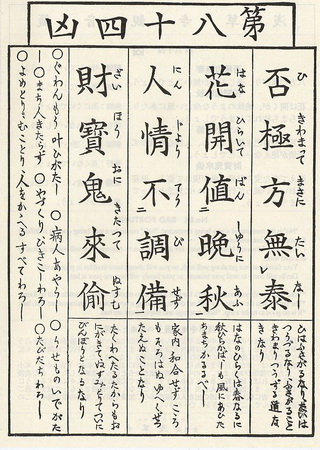 第八十四凶
否極方無泰
ひ きわまって まさに たい なし
ひはふさがるなり泰は
つうづるなりふさがること
きわまりつうずる道な
きなり
花開値晩秋
はな ひらいて ばん しゅうに あふ
はなのひらくは春なるに
秋ひらかばしも風にあひた
ちまちかるるべし
人情不調備
にん じょう てう び せず
家内和合せずこころ
もそろはぬゆへくぜつ
たえぬことなり
財寶鬼來偷
ざい ほう おに きたって ぬすむ
たくわへたるたからもお
にがきてぬすみとりてついに
びんぼうとなるなり
○ぐわんもう叶ひがたし ○病人あやうし ○うせものいでがた
し○まち人きたらず ○やづくりひきこしわろし ○たびだちわろし
○よめとりむことり人をかゝへるすべてわろし